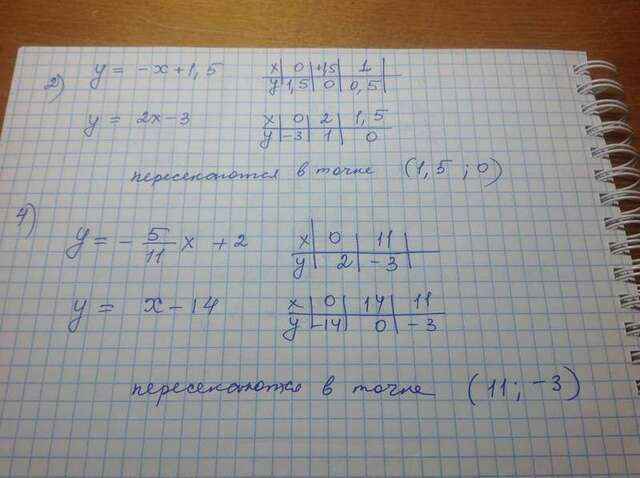 2) y = -x+1,5 x 0 +1,5 1
y 1,5 0 0,5
y = 2x-3 x 0 2 1,5
y -3 1 0
пересекаются в точке (1,5 ; 0)
4) y = - 5/11 x + 2 x 0 11
y 2 -3
y = x-14 x 0 14 11
y -14 0 -3
пересекаются в точке (11; -3)